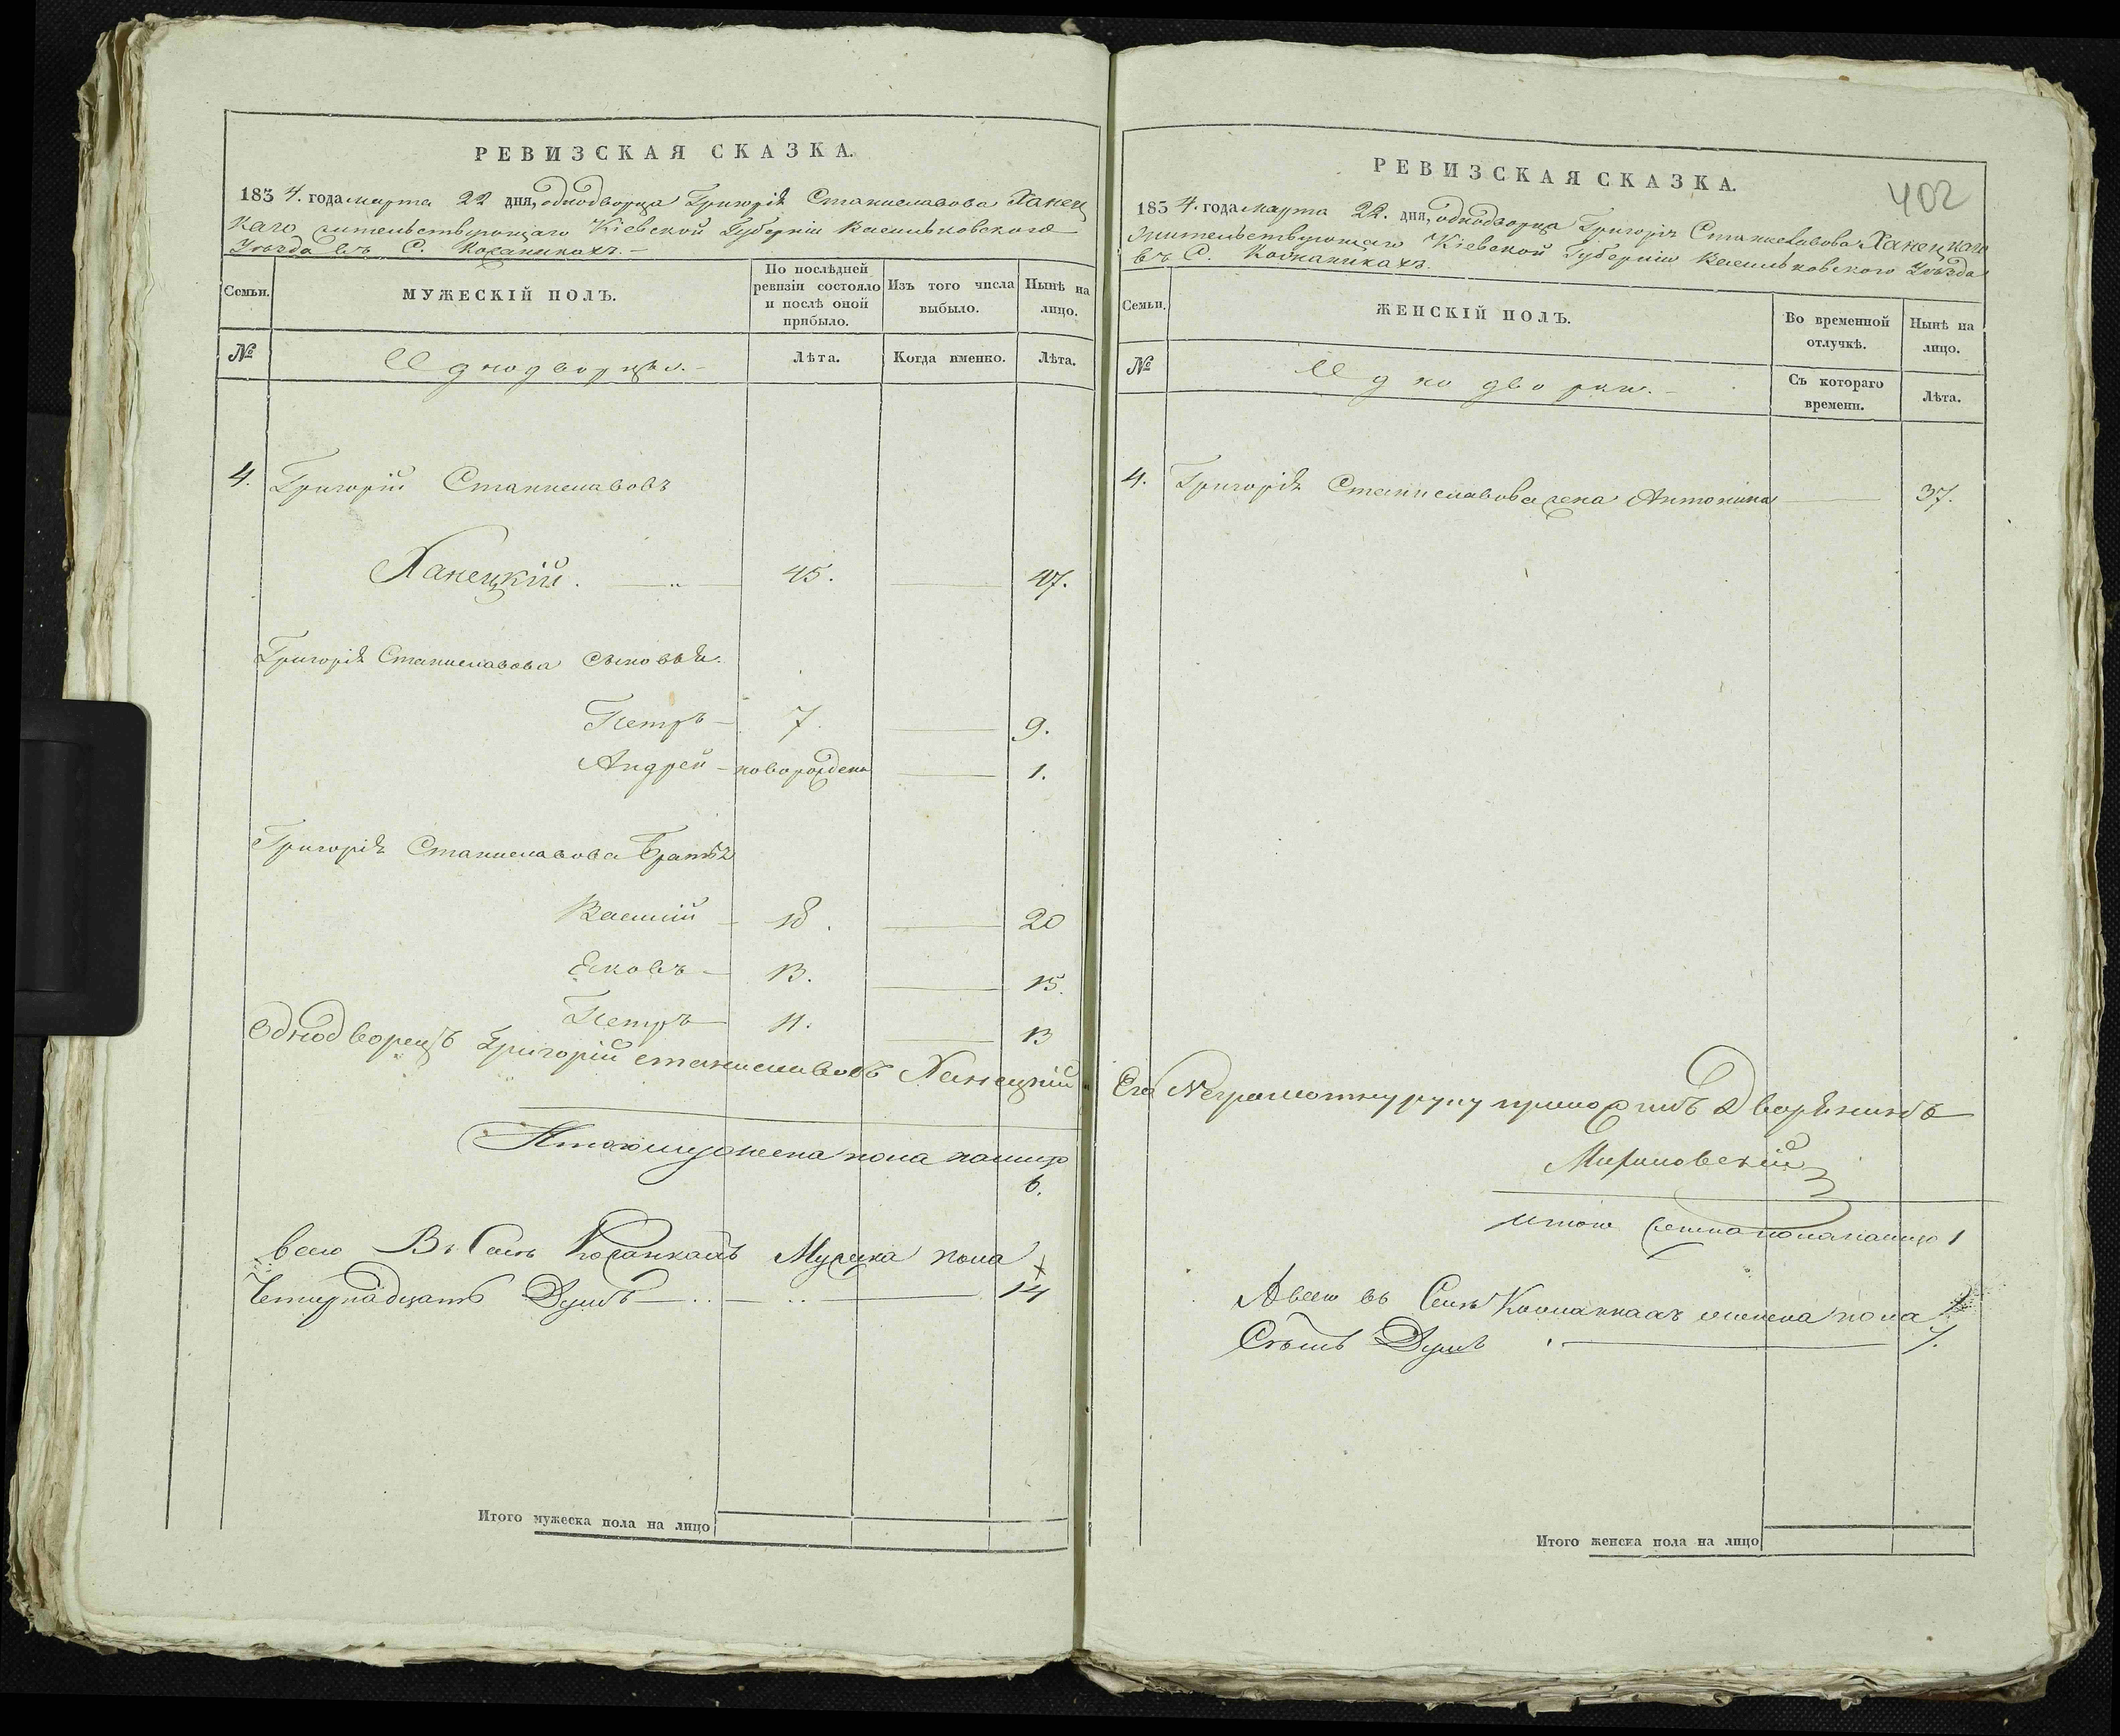 РЕВИЗСКАЯ СКАЗКА.
1834. года марта 22 дня, однодворца Григорія Станиславова Ханец
каго жительствующаго Кіевской Губерніи Васильковского
Уѣзда въ С.
Семьи.
МУЖЕСКІЙ ПОЛЪ.
По послѣдней ревизіи состояло и послѣ оной прибыло.
Изъ того числа выбыло.
Нынѣ на лицо.
№
Однодворцы.
Лѣта.
Когда именно.
Лѣта.
4. Григорій Станиславовъ
Ханецкій. 45. 47.
Григорія Станиславова сыновья.
Петръ 7. 9.
Андрей новорожденъ 1.
Григорія Станиславова Братья
Василій 18. 20
Яковъ 13. 15.
Петръ 11. 13
Однодворецъ Григорій станиславовъ Ханецкій
Итого мужеска пола налицо
6.
всего Въ Селѣ Мужска пола
Четырнадцать Душъ 14
Итого мужеска пола на лицо
402
РЕВИЗСКАЯ СКАЗКА.
1834. года марта 22. дня, однодворца Григорія Станиславова Ханецкаго
Жительствующаго Кіевской Губерніи Васильковского Уѣзда
въ С.
Семьи.
ЖЕНСКІЙ ПОЛЪ.
Во временной отлучкѣ.
Нынѣ на лицо.
№
Однодворки.
Съ котораго времени.
Лѣта.
4. Григорія Станиславова жена Антонина 37.
Его Неграмотну руку приложилъ Дворянинъ
итого женска пола налицо 1
А всего въ Селѣ женска пола
Сѣмь Душъ 7.
Итого женска пола на лицо